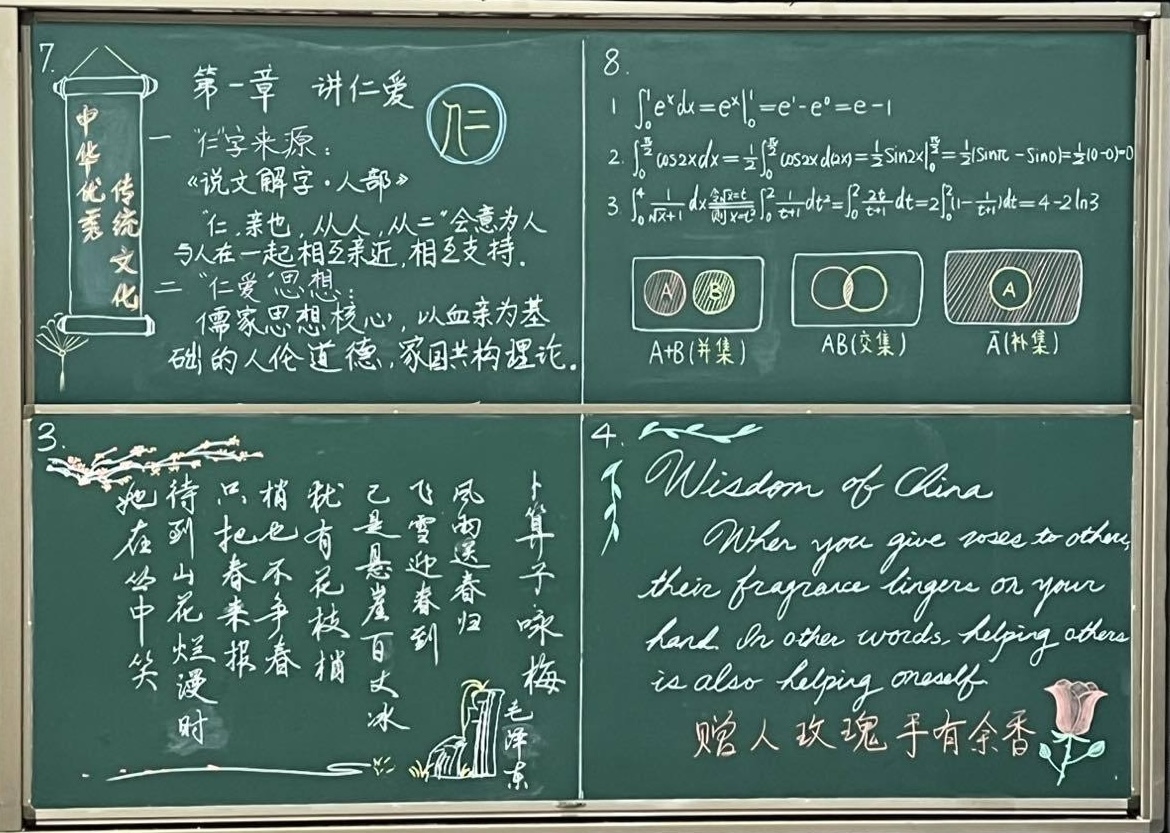 7.
中华优秀
传统文化
第一章 讲仁爱
仁
一 "仁"字来源：
《说文解字·人部》
"仁，亲也，从人，从二"会意为人
与人在一起相互亲近，相互支持．
二 "仁爱"思想：
儒家思想核心，以血亲为基
础的人伦道德，家国共构理论．
8.
1 ∫₀¹eˣdx=eˣ|₀¹=e¹-e⁰=e-1
2. ∫₀^(π/2)cos2xdx=1/2∫₀^(π/2)cos2xd(2x)=1/2Sin2x|₀^(π/2)=1/2(Sinπ-Sin0)=1/2(0-0)=0
3. ∫₀⁴1/(√x+1)dx 令√x=t 则x=t² ∫₀²1/(t+1)dt²=∫₀²2t/(t+1)dt=2∫₀²(1-1/(t+1))dt=4-2ln3
A B
A
A+B(并集)
AB(交集)
Ā(补集)
3.
卜算子咏梅
毛泽东
风雨送春归
飞雪迎春到
已是悬崖百丈冰
犹有花枝梢
梢也不争春
只把春来报
待到山花烂漫时
她在丛中笑
4.
Wisdom of China
When you give roses to others,
their fragrance lingers on your
hand. In other words, helping others
is also helping oneself.
赠人玫瑰手有余香